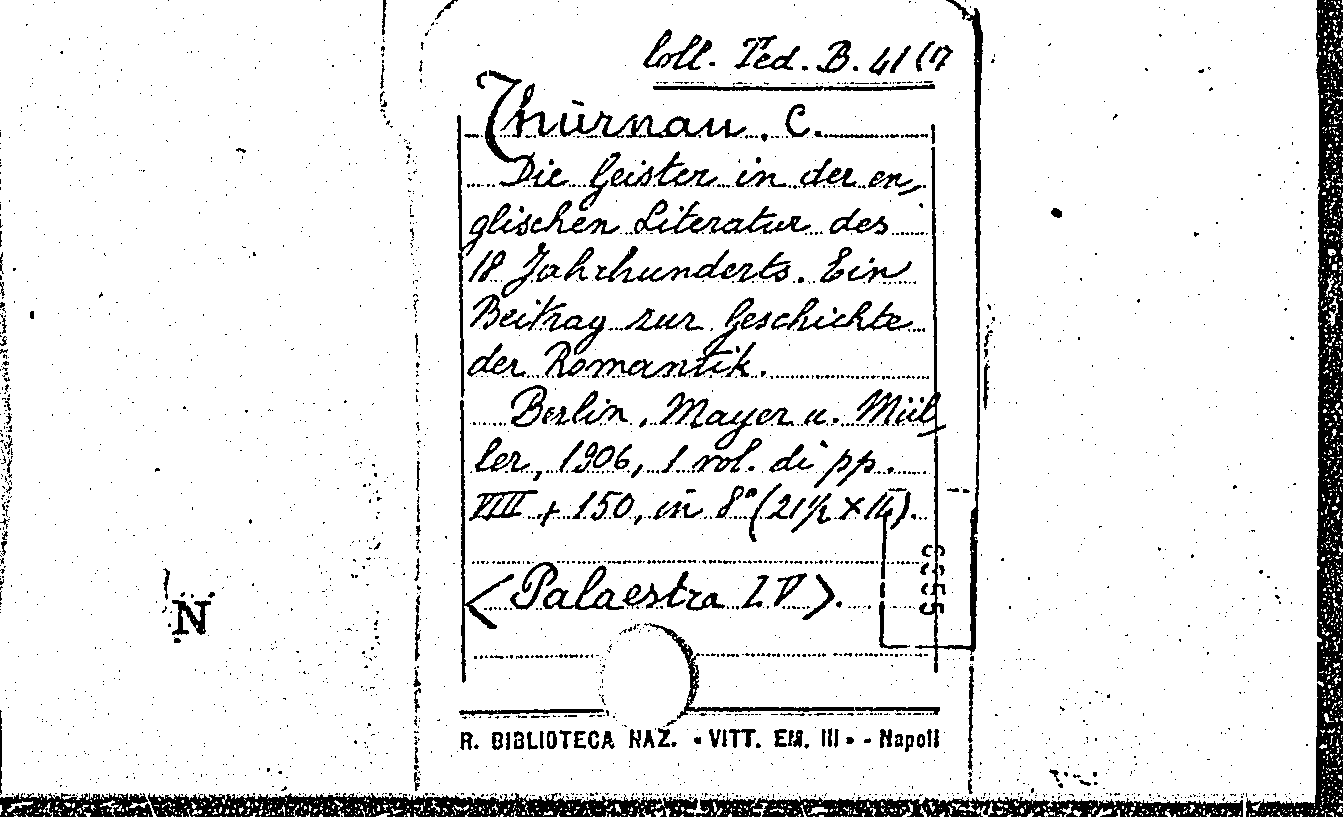 Coll. Ted. B. 41 (7
Thürnau, C.
Die Geister in der en,
glischen Literatur des
18 Jahrhunderts. Ein
Beitrag zur Geschichte
der Romantik.
Berlin, Mayer u. Mül,
ler, 1906, 1 vol. di pp.
VIII + 150, in 8° (21½ × 14).
<Palaestra LV>.
N
R. BIBLIOTECA NAZ. «VITT. EM. III» - Napoli